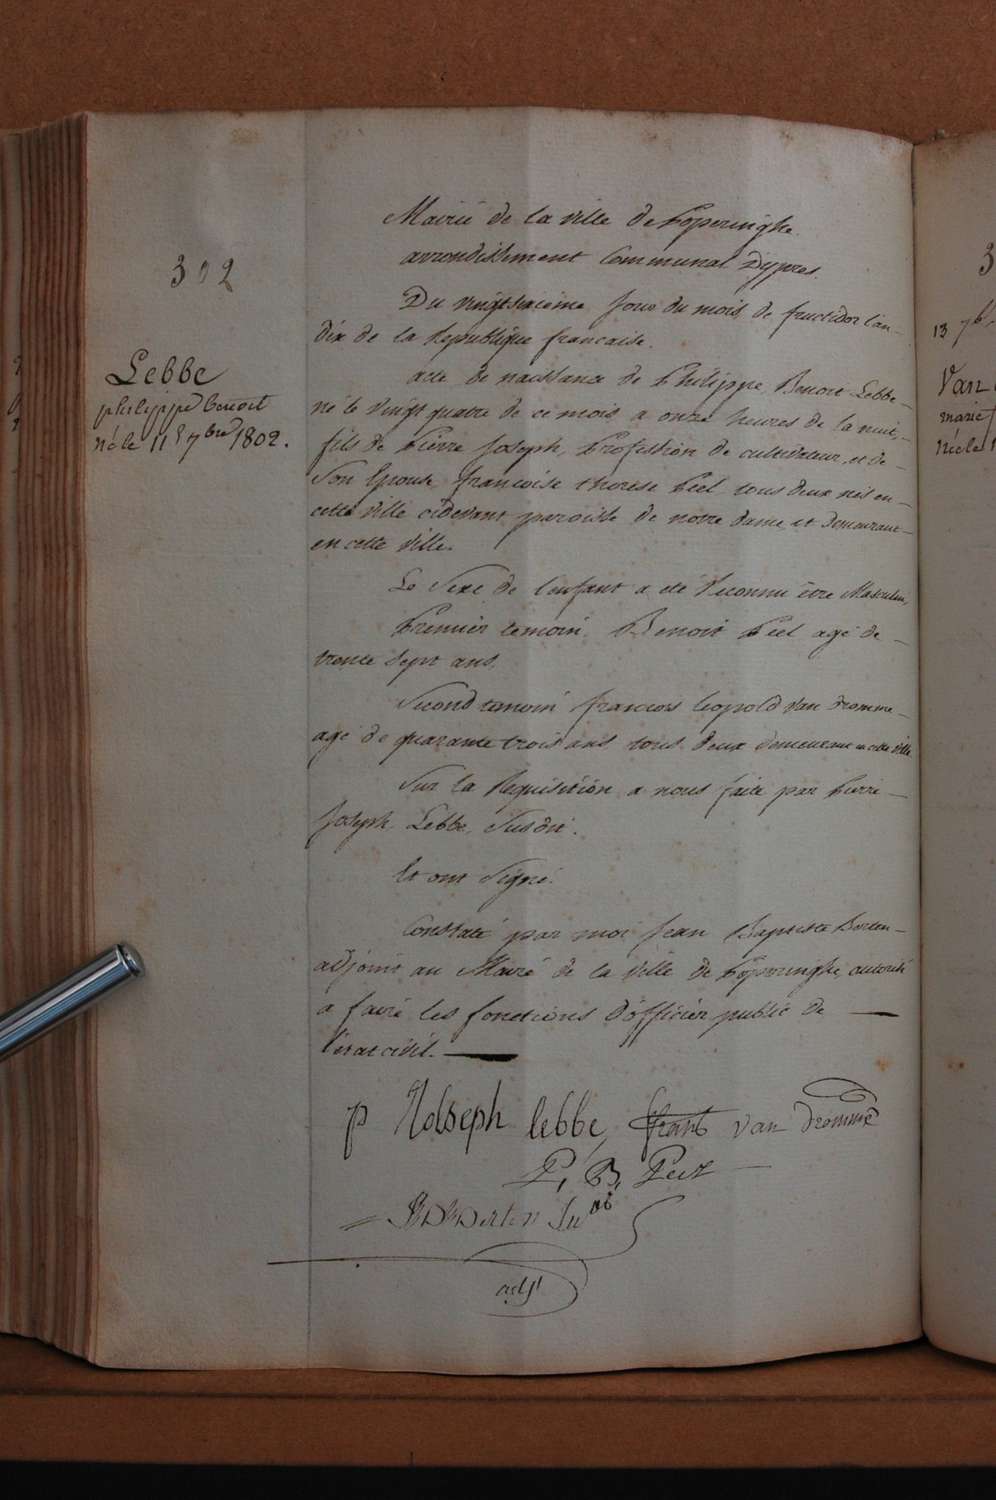 Mairié de la ville de Poperinghe.
arrondissiment Communal Dypres.
302
Du vingtsixieme Jour du mois de fructidor l'an
dix de la Republique francaise.
Lebbe
philippe benoit
né le 11 7bre 1802.
acte de naissance de Philippe Benoit Lebbe
né le vingt quatre de ce mois a onze heures de la nuit,
fils de Pierre Joseph, Profession de cultivateur, et de
Son Epouse francoise therese Peel tous deux nés en
cette ville cidevant paroisse de notre dame et demeurant
en cette ville.
Le Sexe de lenfant a eté Reconnu être Masculin,
Premier temoin. Benoit Peel agé de
trente Sept ans.
Second temoin francois leopold Van Dromme
agé de quarante trois ans tous deux demeurant en cette ville
Sur la Requisition a nous faite par Pierre
Joseph Lebbe, Susdit.
Et ont Signé.
Constaté par moi Jean Baptiste Berten
adjoint au Mairé de la ville de Poperinghe, autorisé
a fairé les fonctions d'officier public de
l'etat civil.
p Jdseph lebbe, frans van Dromme
P, B, Peel
Berten
adjt
3
13 7br
Van
marie
née le 1